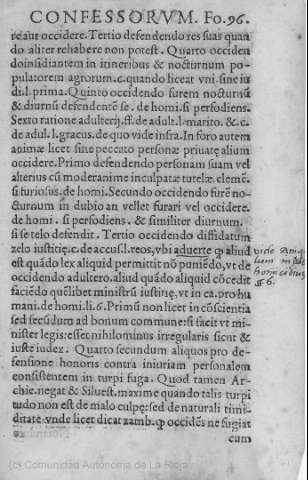 CONFESSORVM. Fo. 96.
re aut occidere. Tertio defendendo res suas quan
do aliter rehabere non potest. Quarto occiden
do insidiantem in itineribus & nocturnum po-
pulatorem agrorum. c. quando liceat vni. sine iu
di. l. prima. Quinto occidendo furem nocturnũ
& diurnũ defendentẽ se. de homi. si perfodiens.
Sexto ratione adulterij. ff. de adult. l. marito. & c.
de adul. l. gracus. de quo vide infra. In foro autem
animæ licet sine peccato personæ priuatę alium
occidere. Primo defendendo personam suam vel
alterius cũ moderamine inculpatæ tutelæ. clemẽ.
si furiosus. de homi. Secundo occidendo furẽ no-
cturnum in dubio an vellet furari vel occidere.
de homi. si perfodiens. & similiter diurnum.
si se telo defendit. Tertio occidendo diffidatum
zelo iustitię. c. de accus. l. reos, vbi aduerte ꝙ aliud
est quãdo lex aliquid permittit nõ puniẽdo, vt de
occidendo adultero. aliud quãdo aliquid cõcedit
faciẽdo quẽlibet ministrũ iustitię, vt in ea. pro hu
mani. de homi. li. 6. Primũ non licet in cõscientia
sed secũdum ad bonum commune: si facit vt mi-
nister legis: esset nihilominus irregularis sicut &
iuste iudex. Quarto secundum aliquos pro de-
fensione honoris contra iniuriam personalem
consistentem in turpi fuga. Quod tamen Ar-
chie. negat & Siluest. maxime quando talis turpi
tudo non est de malo culpę: sed de naturali timi-
ditate vnde licet dicat zamb. ꝙ occidẽs ne fugiat
cum
vide
homicidium
§ 6.
(c) Comunidad Autónoma de La Rioja